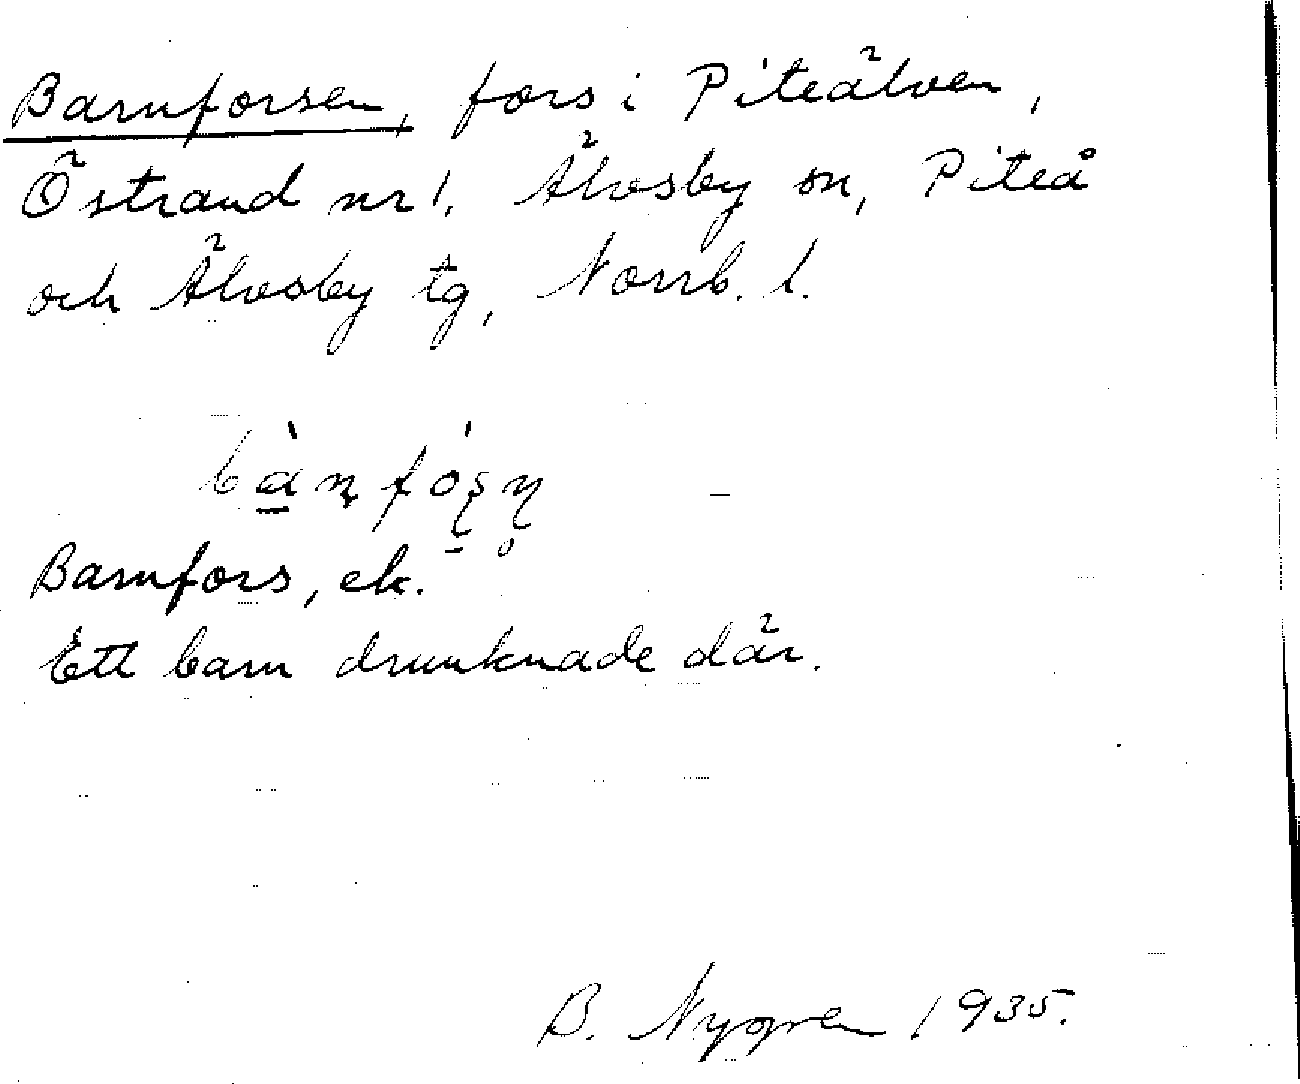 Barnforsen, fors i Piteälven,
Östrand nr 1. Älvsby sn, Piteå
och Älvsby tg, Norrb. l.
bànfó̱ṣṇ
Barnfors, ek.
Ett barn drunknade där.
B. Nygren 1935.